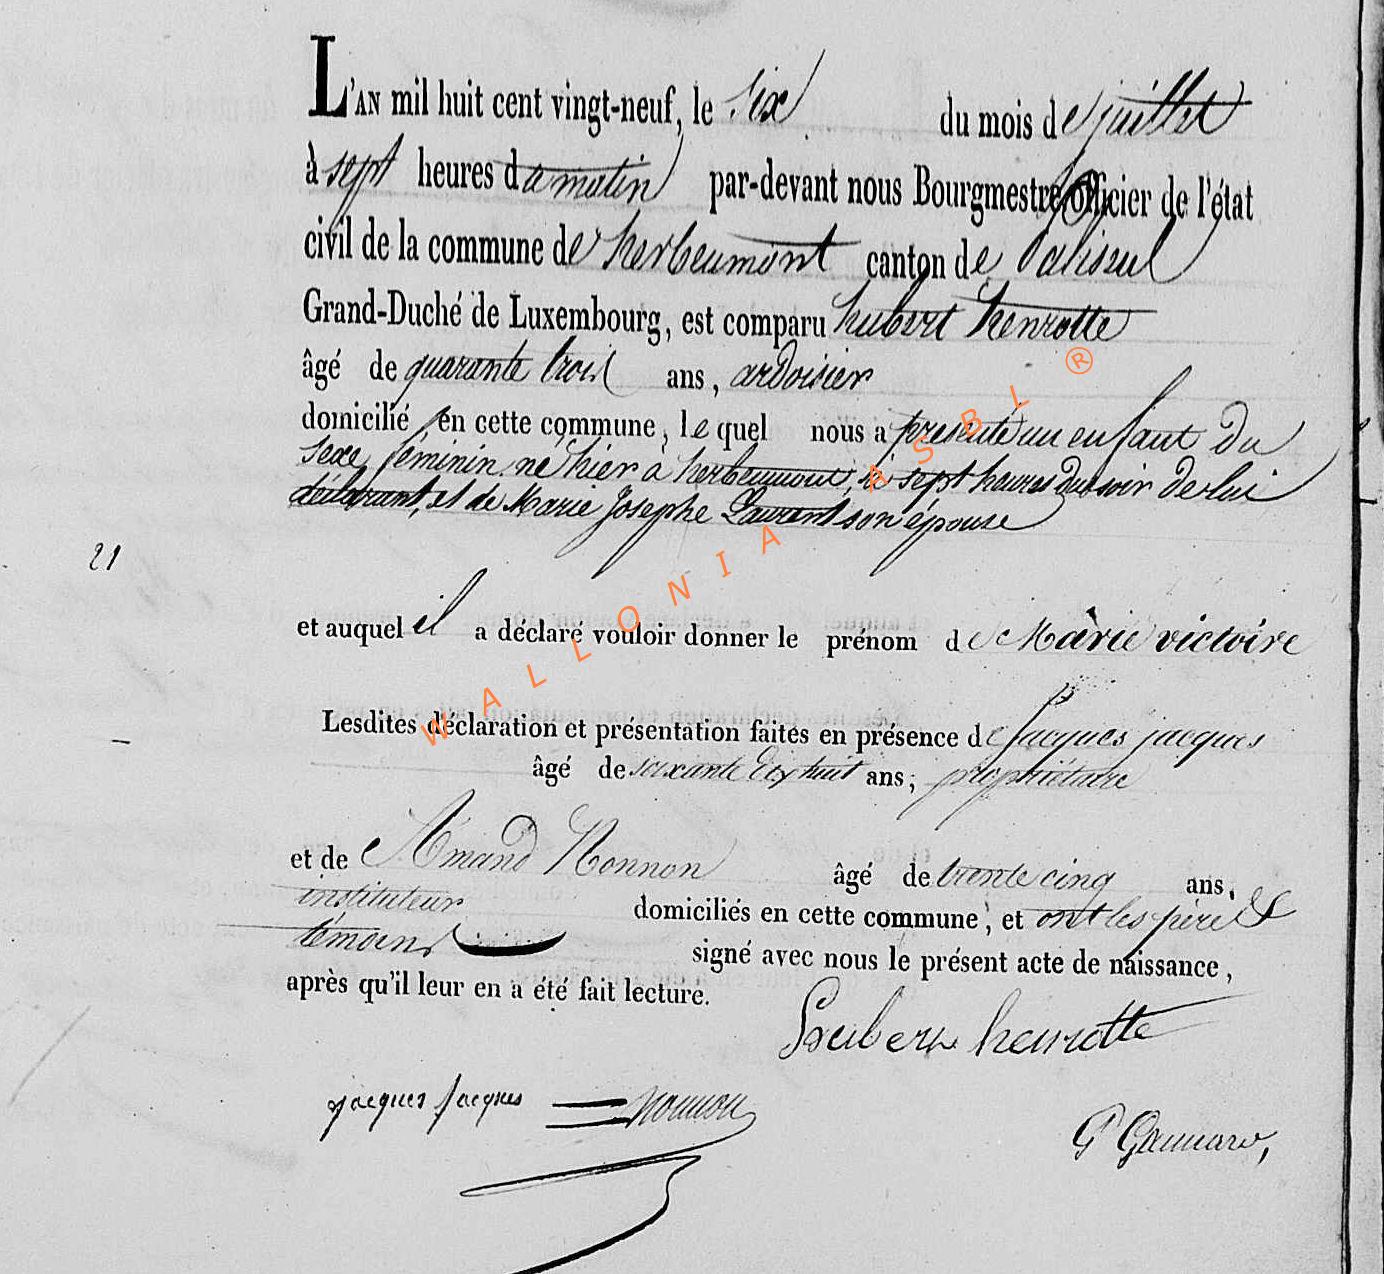 L'AN mil huit cent vingt-neuf, le six du mois de juillet
à sept heures da matin par-devant nous Bourgmestre officier de l'état
civil de la commune de herbeumont canton de Paliseul
Grand-Duché de Luxembourg, est comparu hubert henrotte
âgé de quarante trois ans, ardoisier
domicilié en cette commune, lequel nous a présenté un enfant du
sexe féminin né hier à herbeumont, à sept heures du soir de lui
déclarant, et de Marie Josephe Laurent son épouse
21
et auquel il a déclaré vouloir donner le prénom de Marie victoire
Lesdites déclaration et présentation faites en présence de Jacques jacques
âgé de soixante dix huit ans; propriétaire
et de Amand Nonnon âgé de trente cinq ans,
instituteur domiciliés en cette commune, et ont les père &
témoins signé avec nous le présent acte de naissance,
après qu'il leur en a été fait lecture.
hubert henrotte
jacques Jacques Nonnon
WALLONIA ASBL ®